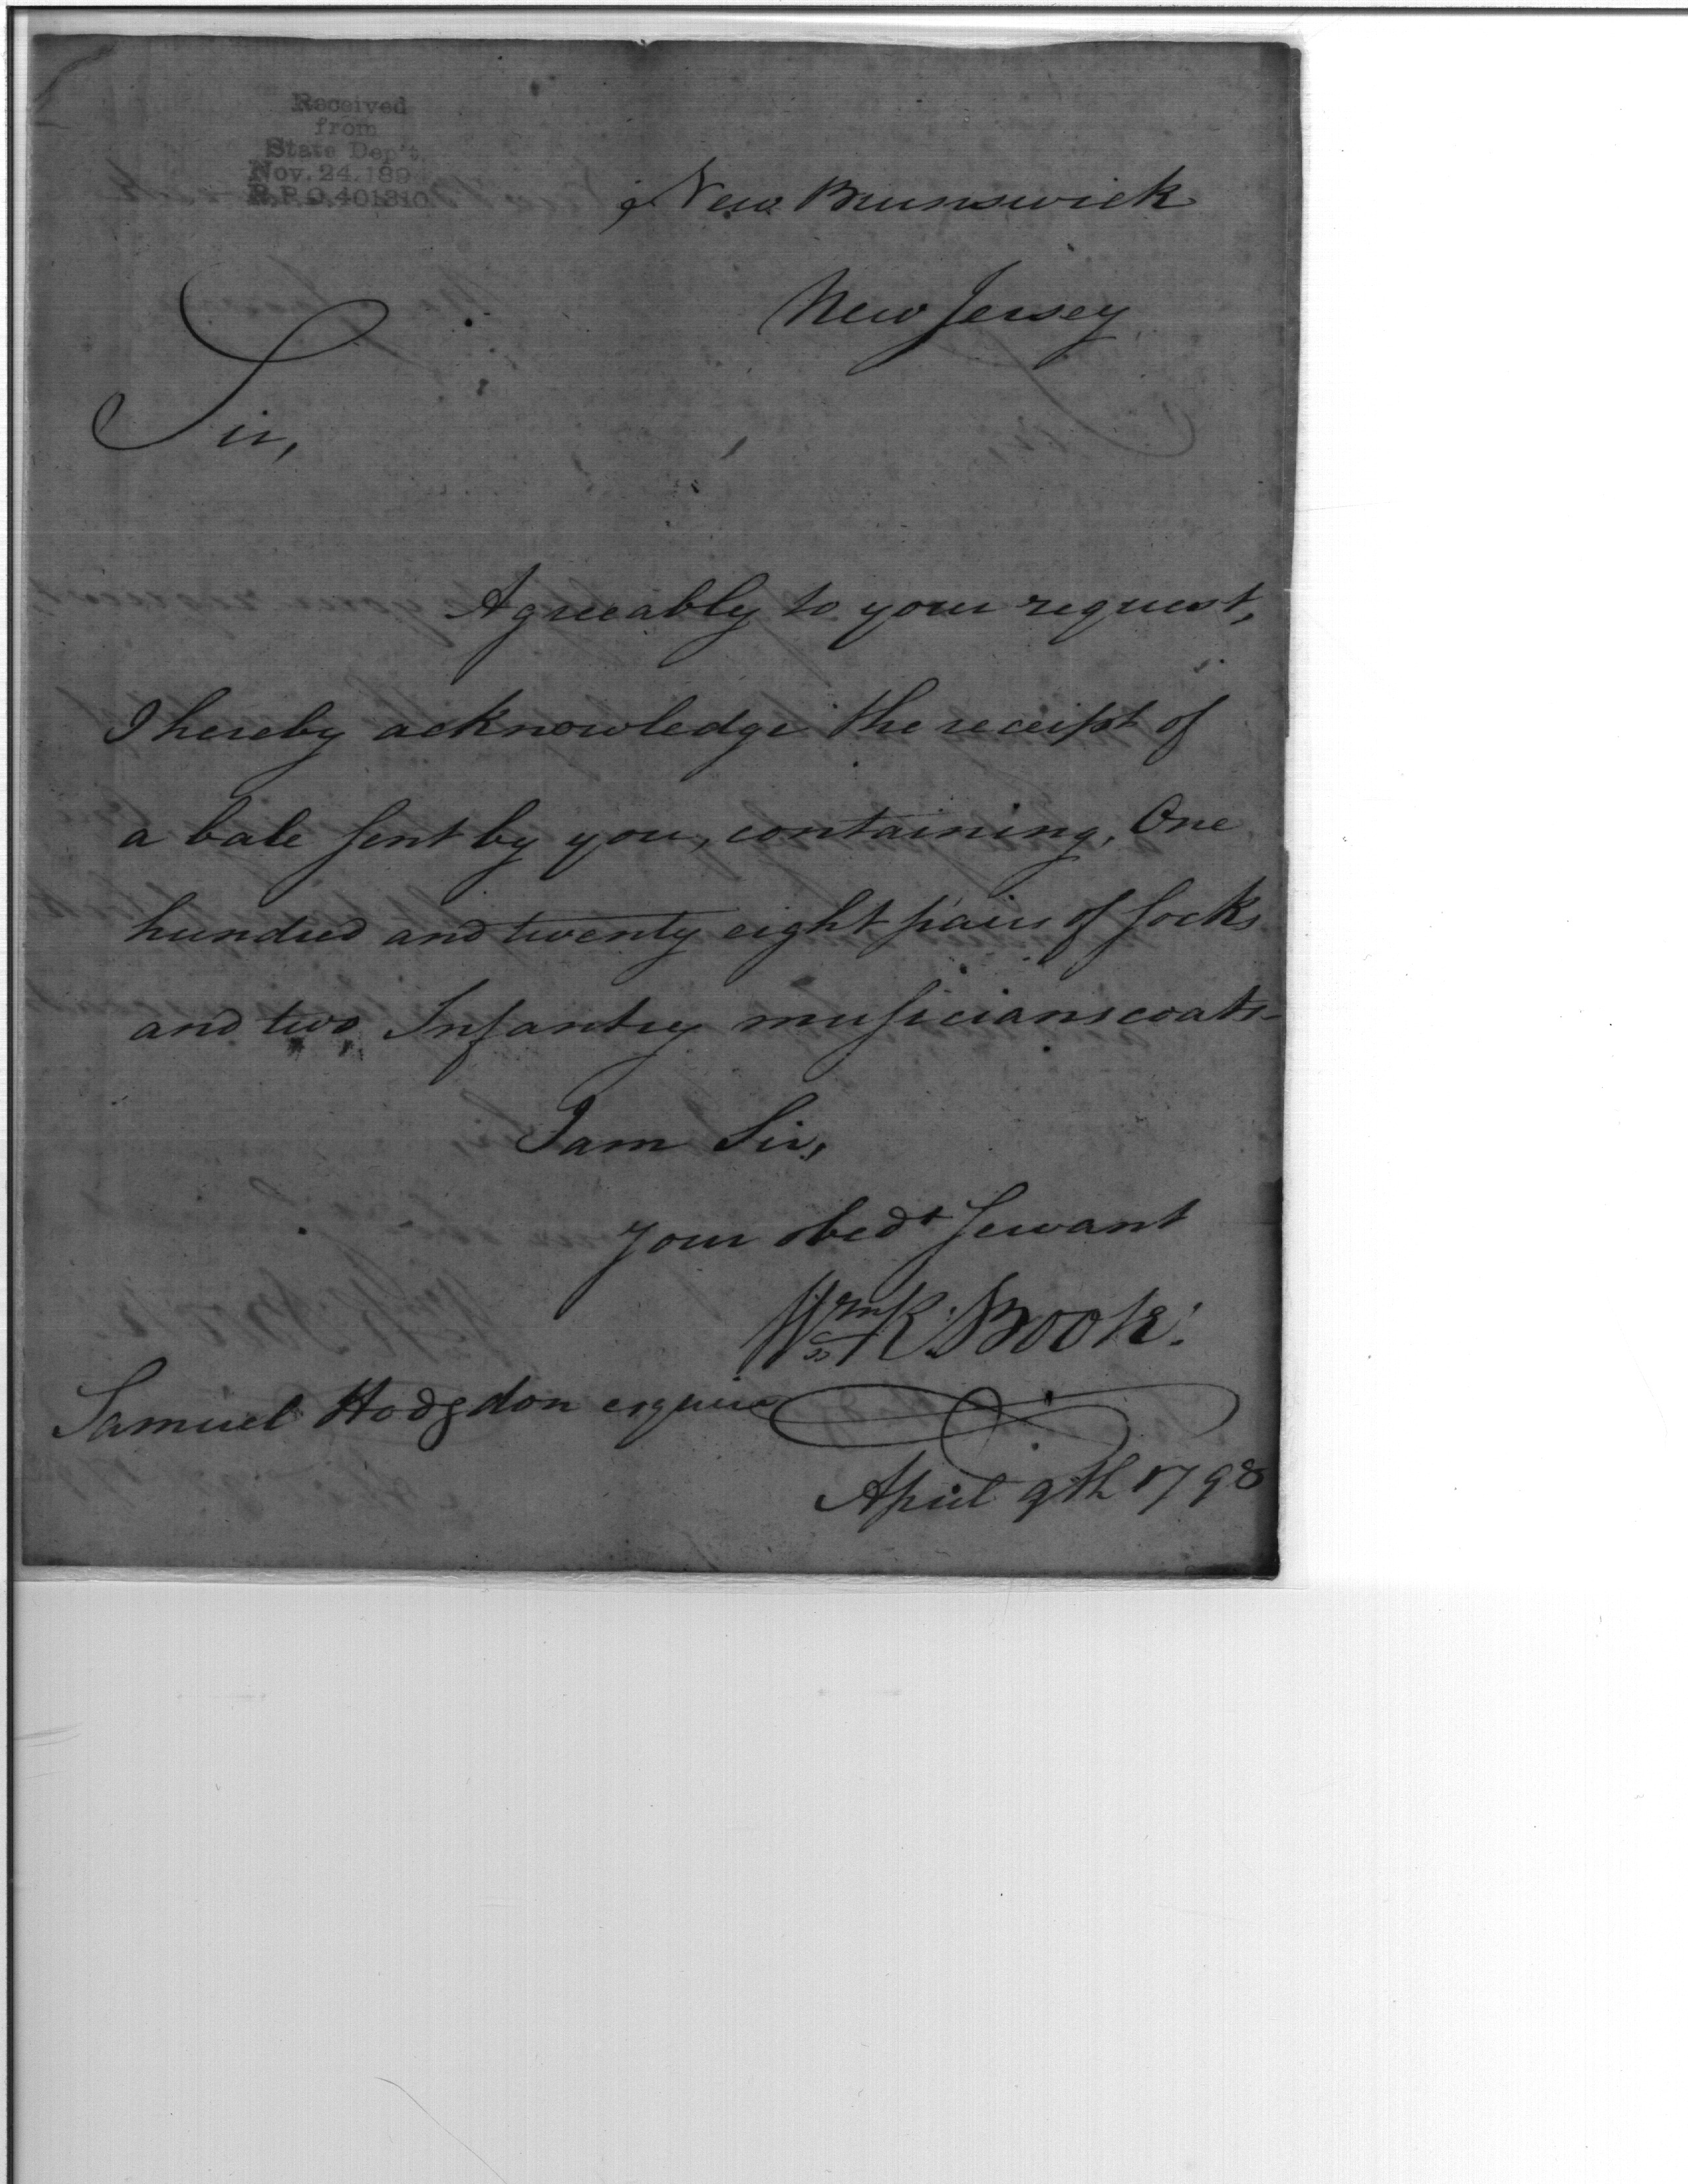 Received
from
State Dep't.
Nov. 24. 189
R.P.O. 401310
New Brunswick
New Jersey
Sir,
Agreeably to your request,
I hereby acknowledge the receipt of
a bale sent by you, containing, One
hundred and twenty eight pairs of socks
and two Infantry musicians coats-
I am Sir,
your obedt servant
Wm K: Brook:
Samuel Hodgdon esquire
April 9th 1798